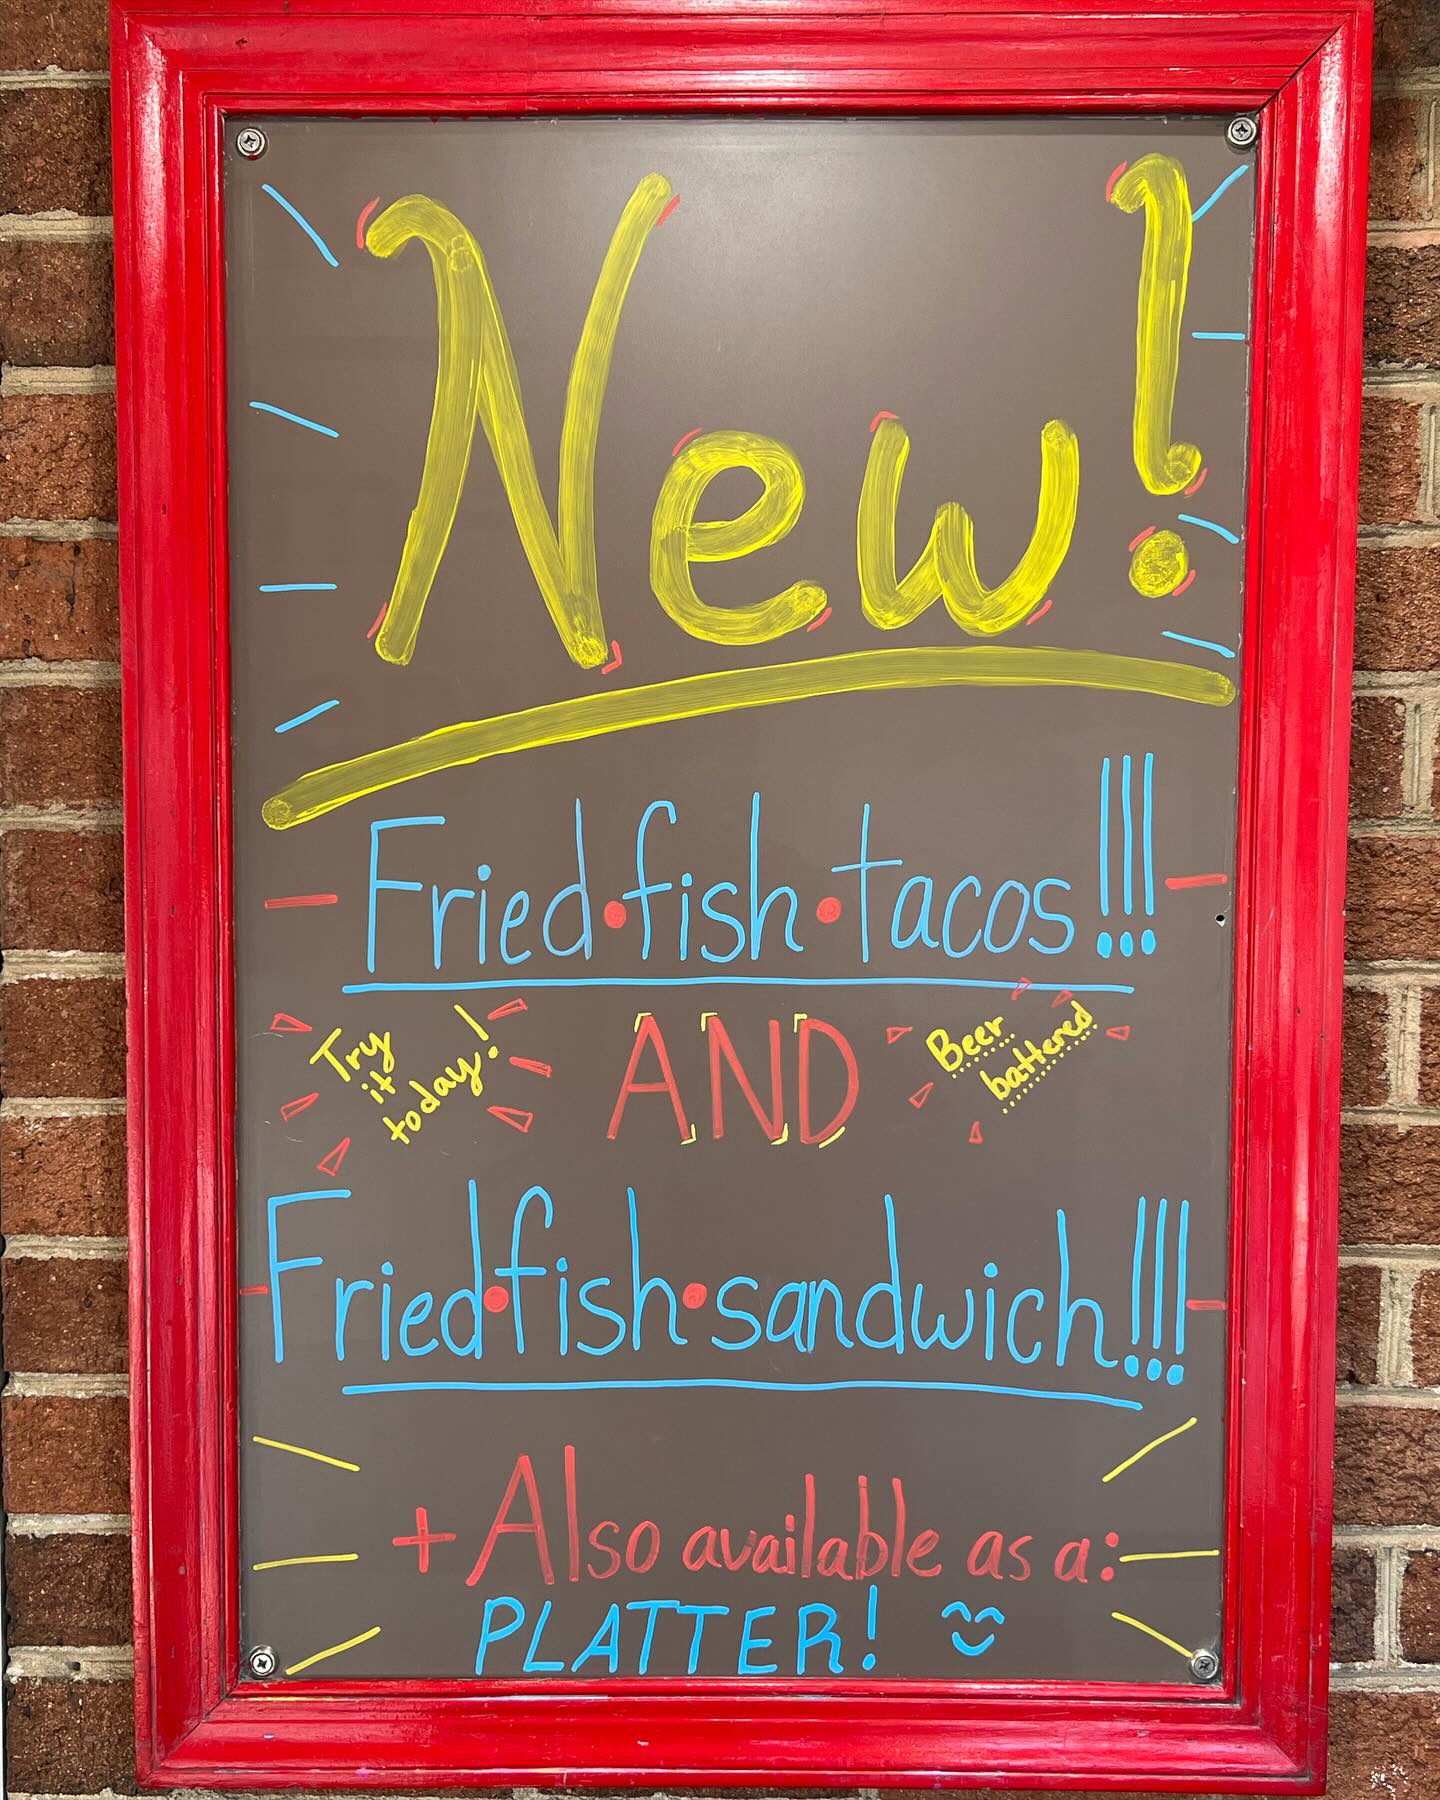 New!
Fried•fish•tacos!!!
Try
it
today!
AND
Beer
battered
Fried•fish•sandwich!!!
+ Also available as a:
PLATTER!